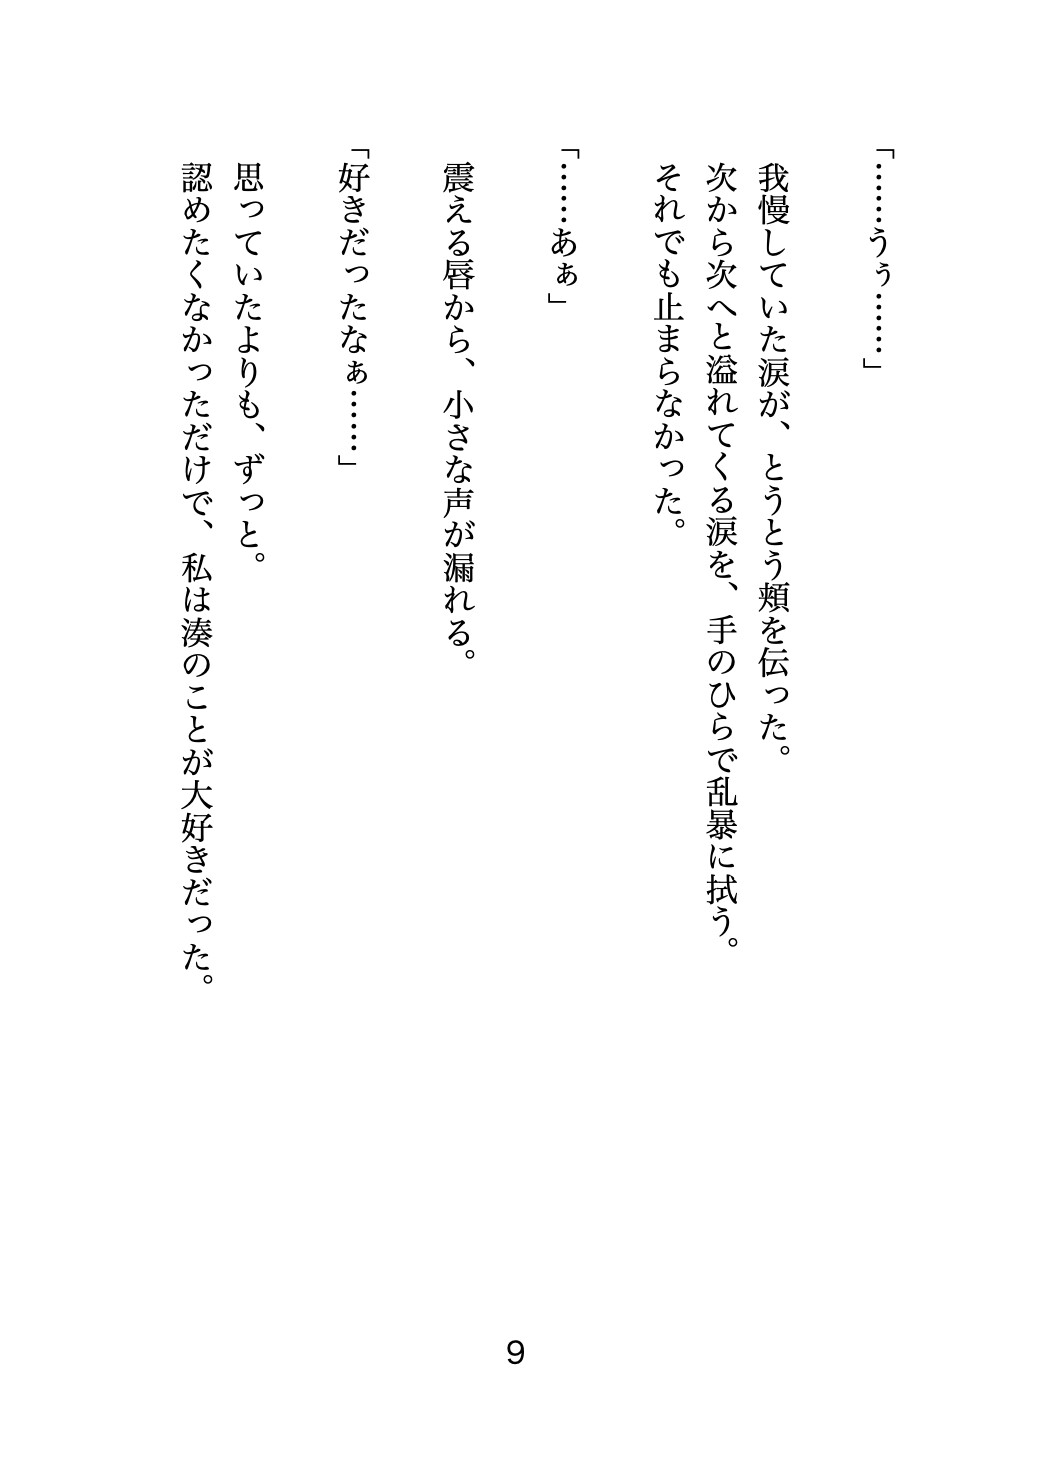 「……うぅ……」
我慢していた涙が、とうとう頬を伝った。
次から次へと溢れてくる涙を、手のひらで乱暴に拭う。
それでも止まらなかった。
「……あぁ」
震える唇から、小さな声が漏れる。
「好きだったなぁ……」
思っていたよりも、ずっと。
認めたくなかっただけで、私は湊のことが大好きだった。
9